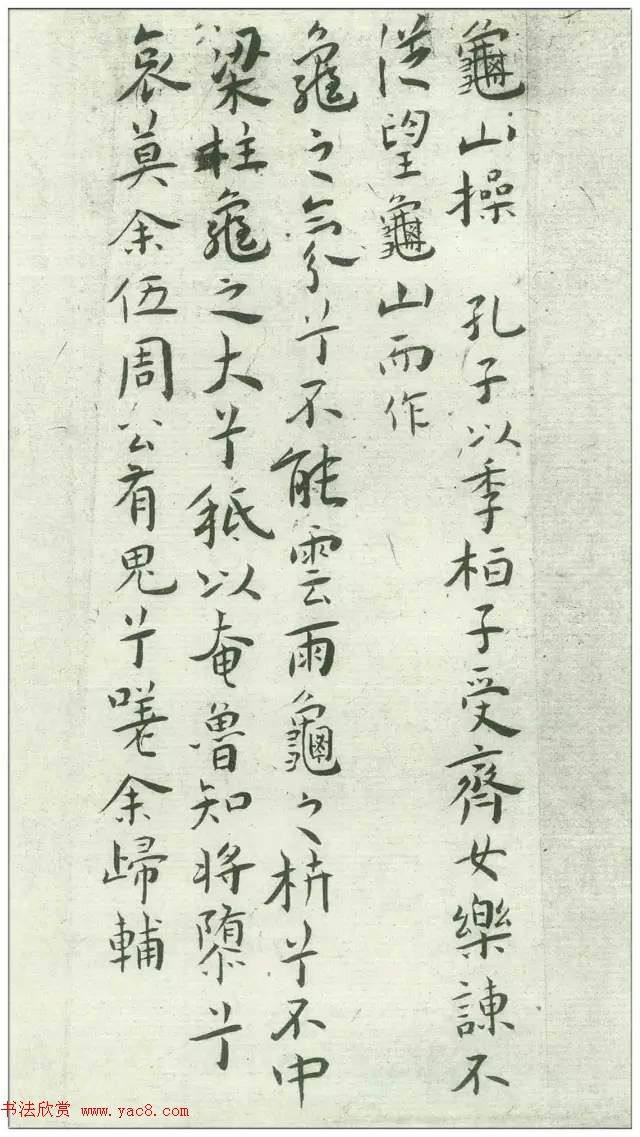 龜山操 孔子以季桓子受齊女樂諫不
從望龜山而作
龜之氛兮不能雲雨龜之枿兮不中
梁柱龜之大兮秪以奄魯知将隳兮
哀莫余伍周公有鬼兮嗟余歸輔
书法欣赏 www.yac8.com